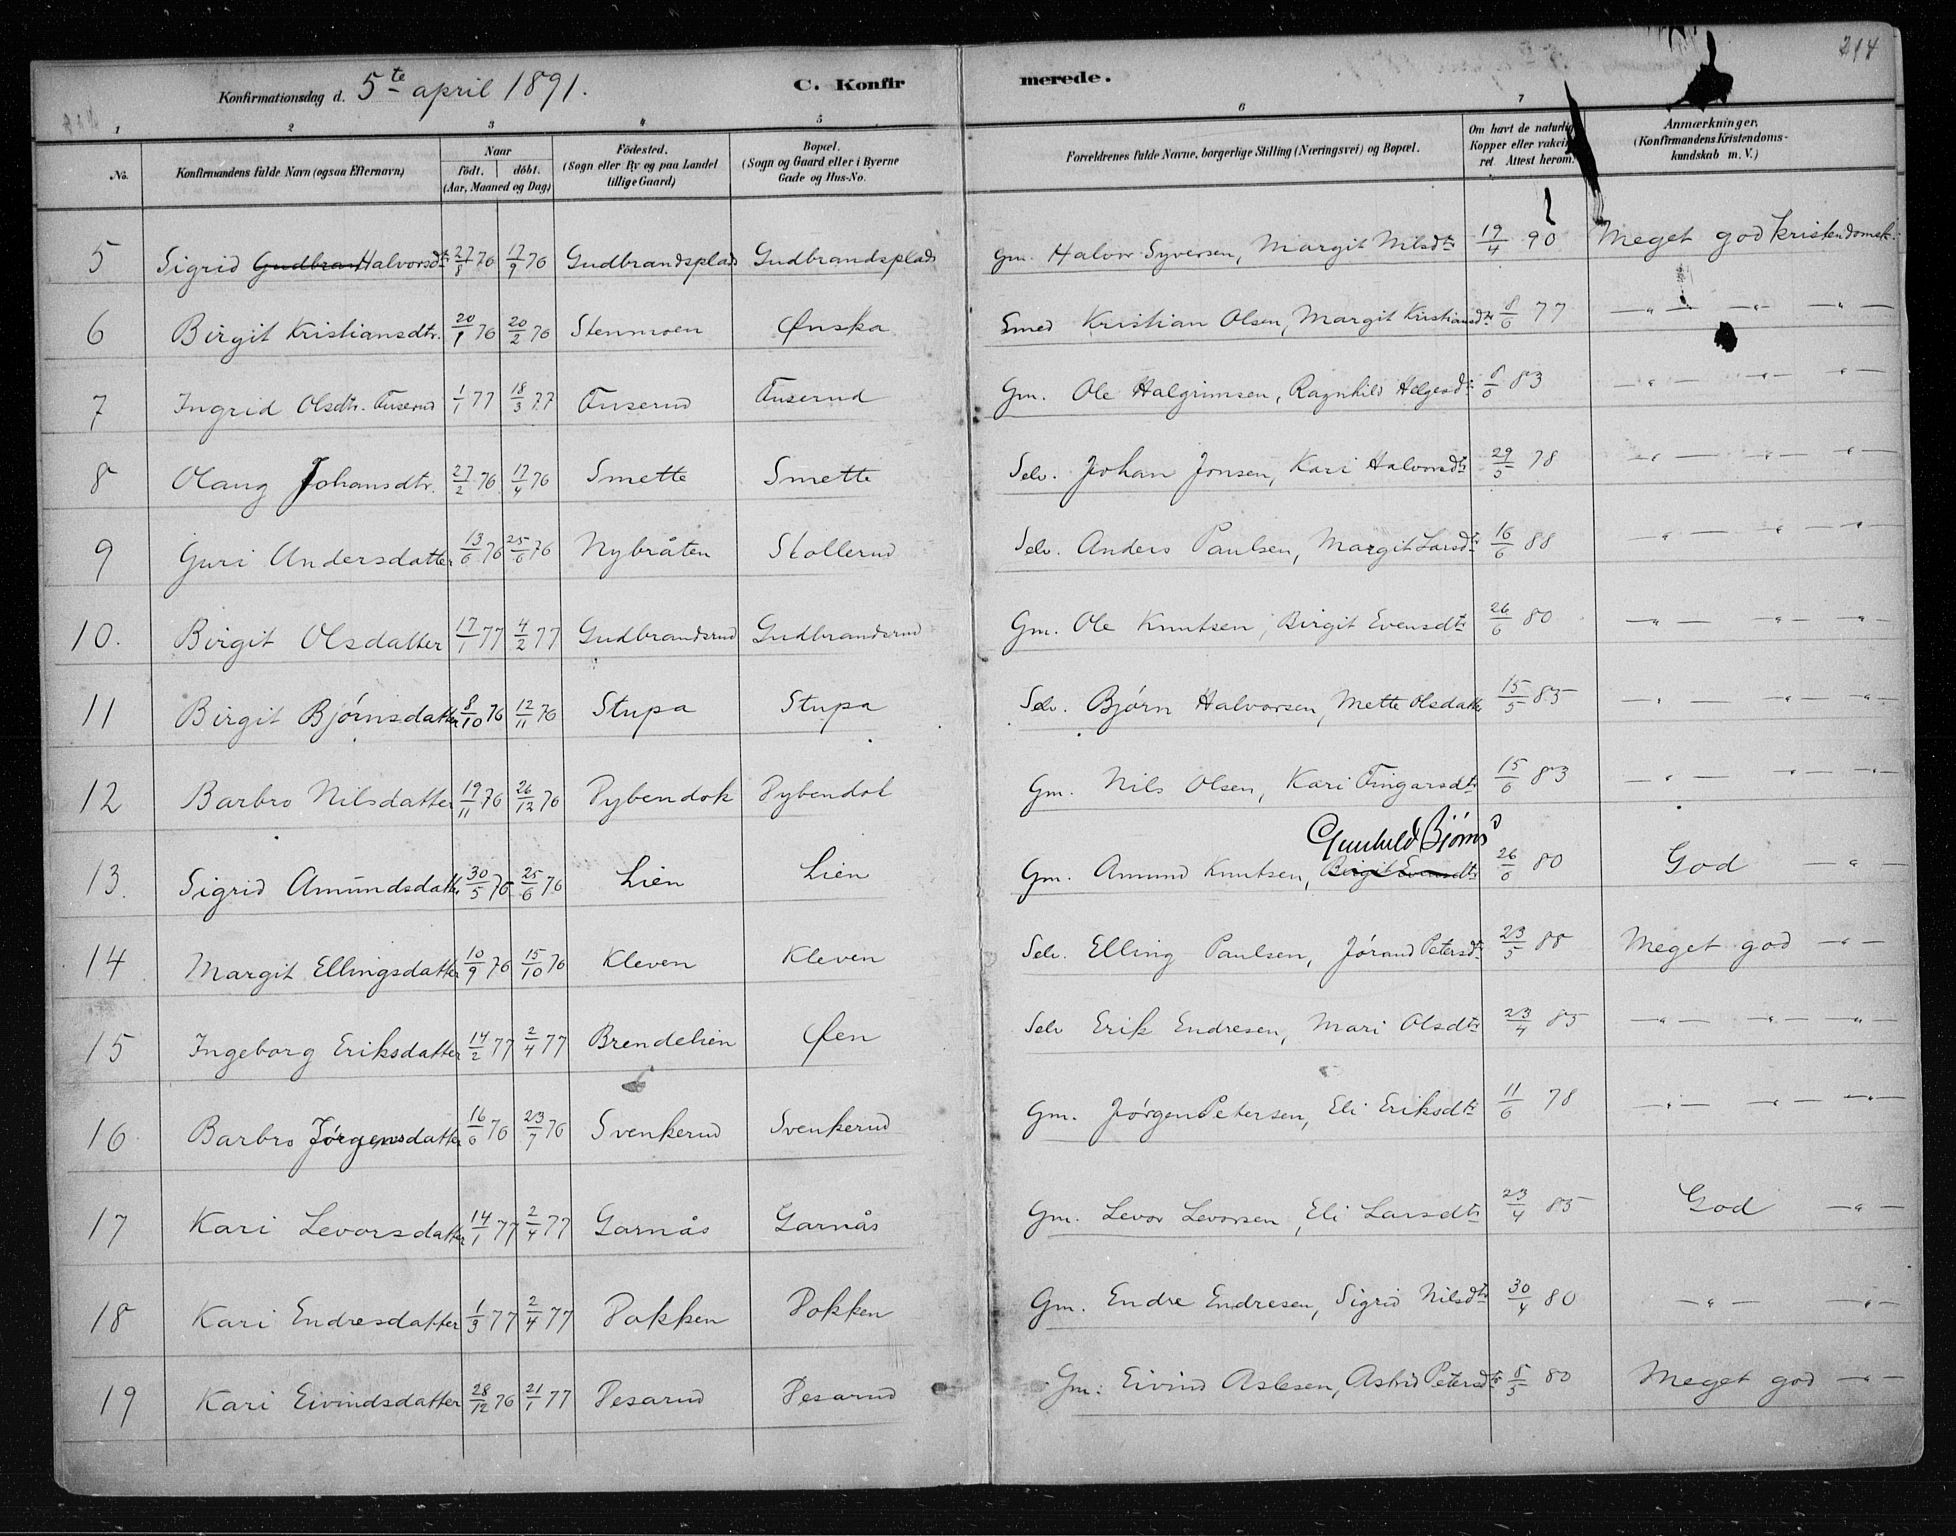 214
Konfirmationsdag d. 5te april 1891.
C. Konfirmerede.
1 2 3 4 5 6 7
No. Konfirmandens fulde Navn (ogsaa Efternavn) Naar födt. döbt. (Aar, Maaned og Dag) Födested. (Sogn eller By og paa Landet tillige Gaard) Bopæl. (Sogn og Gaard eller i Byerne Gade og Hus-No. Forældrenes fulde Navne, borgerlige Stilling (Næringsvei) og Bopæl. Om havt de naturlig Kopper eller vakein ret. Attest herom. Anmærkninger. (Konfirmandens Kristendomskundskab m. V.)
5 Sigrid Gudbran Halvorsdtr 27/8 76 17/9 76 Gudbrandsplads Gudbrandsplads Gm. Halvor Syversen, Margit Nilsdtr 19/4 90 Meget god kristendomsk.
6 Birgit Kristiansdtr. 20/1 76 20/2 76 Stenmoen Ønska Smed Kristian Olsen, Margit Kristiansdtr 8/6 77 —"— —"— —"—
7 Ingrid Olsdtr. Tuserud 1/1 77 18/3 77 Tuserud Tuserud Gm. Ole Halgrimsen, Ragnhild Helgesdtr 8/6 83 —"— —"— —"—
8 Olaug Johansdtr. 27/2 76 17/4 76 Smette Smette Selv. Johan Jonsen, Kari Halvorsdtr 29/5 78 —"— —"— —"—
9 Guri Andersdatter 13/6 76 25/6 76 Nybråten Stollerud Selv. Anders Paulsen, Margit Larsdtr 16/6 88 —"— —"— —"—
10. Birgit Olsdatter 17/1 77 4/2 77 Gudbrandsrud Gudbrandsrud Gm. Ole Knutsen, Birgit Evensdtr 26/6 80 —"— —"— —"—
11 Birgit Bjørnsdatter 8/10 76 12/11 76 Stupa Stupa Selv. Bjørn Halvorsen, Mette Olsdatter 15/5 85 —"— —"— —"—
12 Barbro Nilsdatter 19/11 76 26/12 76 Pybendok Pybendok Gm. Nils Olsen, Kari Fingarsdtr 15/6 83 —"— —"— —"—
Gunhild Bjørns
13. Sigrid Amundsdatter 30/5 76 25/6 76 Lien Lien Gm. Amund Knutsen, Birgit Evensdtr 26/6 80 God —"—
14 Margit Ellingsdatter 10/9 76 15/10 76 Kleven Kleven Selv. Elling Paulsen, Jørand Petersdtr 23/5 88 Meget god —"—
15 Ingeborg Eriksdatter 14/2 77 2/4 77 Brendelien Øen Selv Erik Endresen, Mari Olsdtr 23/4 85 —"— —"— —"—
16 Barbro Jørgensdatter 16/6 76 23/7 76 Svenkerud Svenkerud Gm. Jørgen Petersen, Eli Eriksdtr 11/6 78 —"— —"— —"—
17 Kari Levorsdatter 14/1 77 2/4 77 Garnås Garnås Gm. Levor Levorsen, Eli Larsdtr 23/4 85 God —"—
18 Kari Endresdatter 1/3 77 2/4 77 Pokken Pokken Gm. Endre Endresen, Sigrid Nilsdtr 30/4 80 —"— —"—
19 Kari Eivindsdatter 28/12 76 21/1 77 Pesarud Pesarud Gm. Eivind Aslesen, Astrid Petersdtr 8/5 80 Meget god —"—